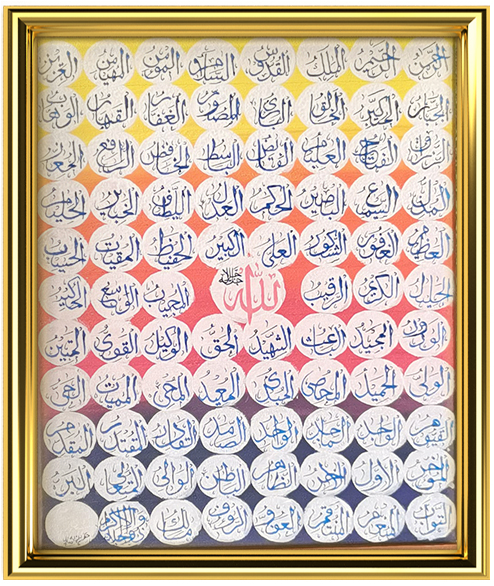 الرحمن الرحيم الملك القدوس السلام المؤمن المهيمن العزيز
الجبار المتكبر الخالق البارئ المصور الغفار القهار الوهاب
الرزاق الفتاح العليم القابض الباسط الخافض الرافع المعز
المذل السميع البصير الحكم العدل اللطيف الخبير الحليم
العظيم الغفور الشكور العلي الكبير الحفيظ المقيت الحسيب
الجليل الكريم الرقيب الله جل جلاله المجيب الواسع الحكيم
الودود المجيد الباعث الشهيد الحق الوكيل القوي المتين
الولي الحميد المحصي المبدئ المعيد المحيي المميت الحي
القيوم الواجد الماجد الواحد الصمد القادر المقتدر المقدم
المؤخر الأول الآخر الظاهر الباطن الوالي المتعالي البر
التواب المنعم المنتقم العفو الرؤوف مالك الملك ذو الجلال والإكرام